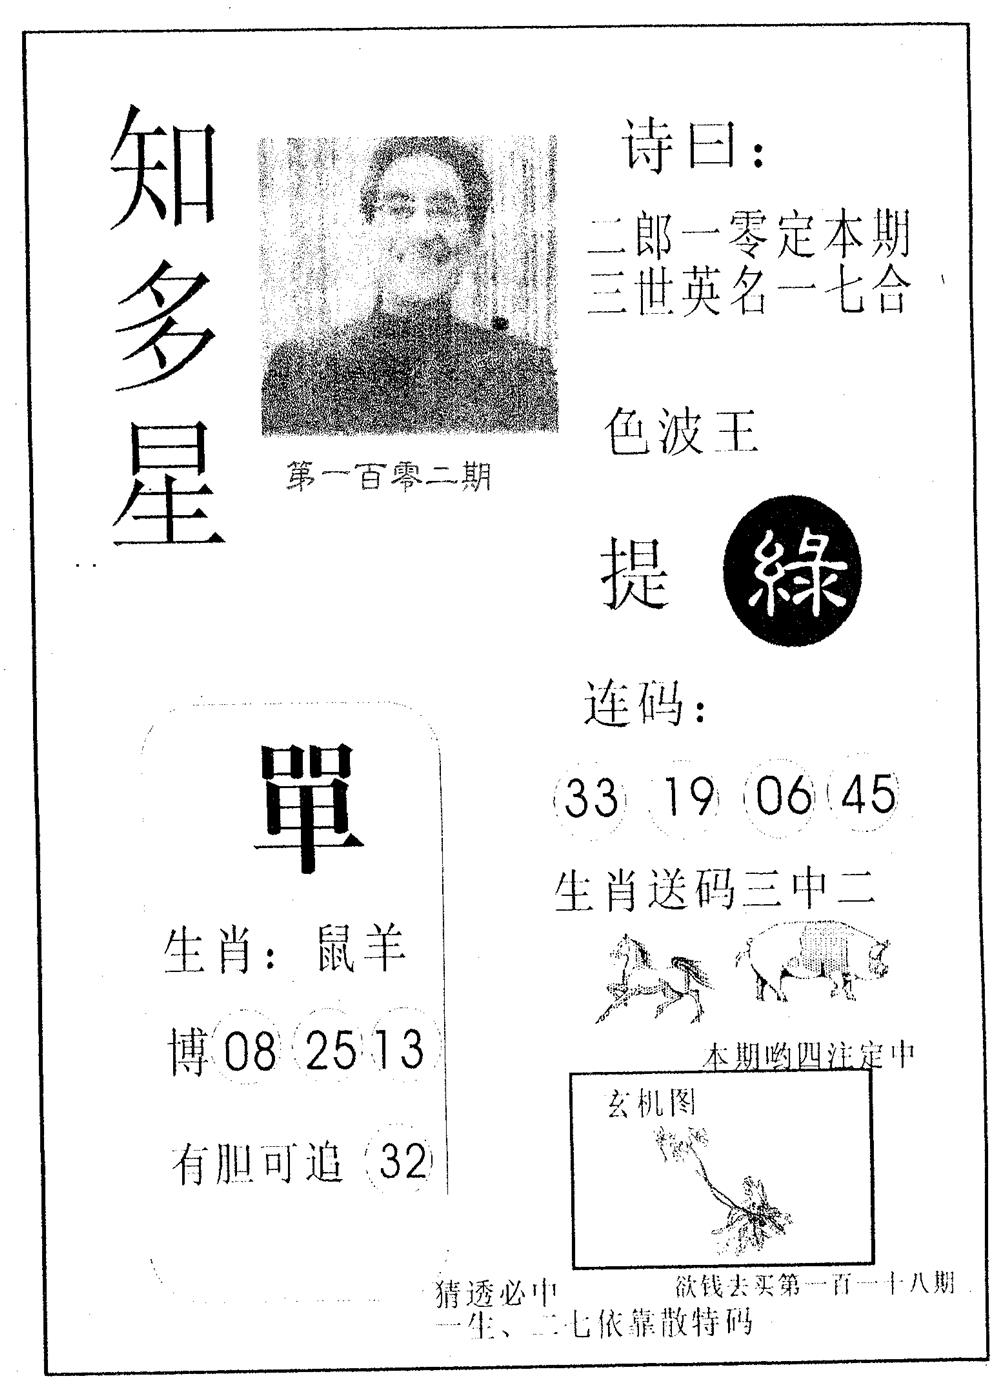 知多星
第一百零二期
诗曰：
二郎一零定本期
三世英名一七合
色波王
提 綠
连码：
33 19 06 45
生肖送码三中二
單
生肖：鼠羊
博 08 25 13
有胆可追 32
本期哟四注定中
玄机图
欲钱去买第一百一十八期
猜透必中
一生、二七依靠散特码